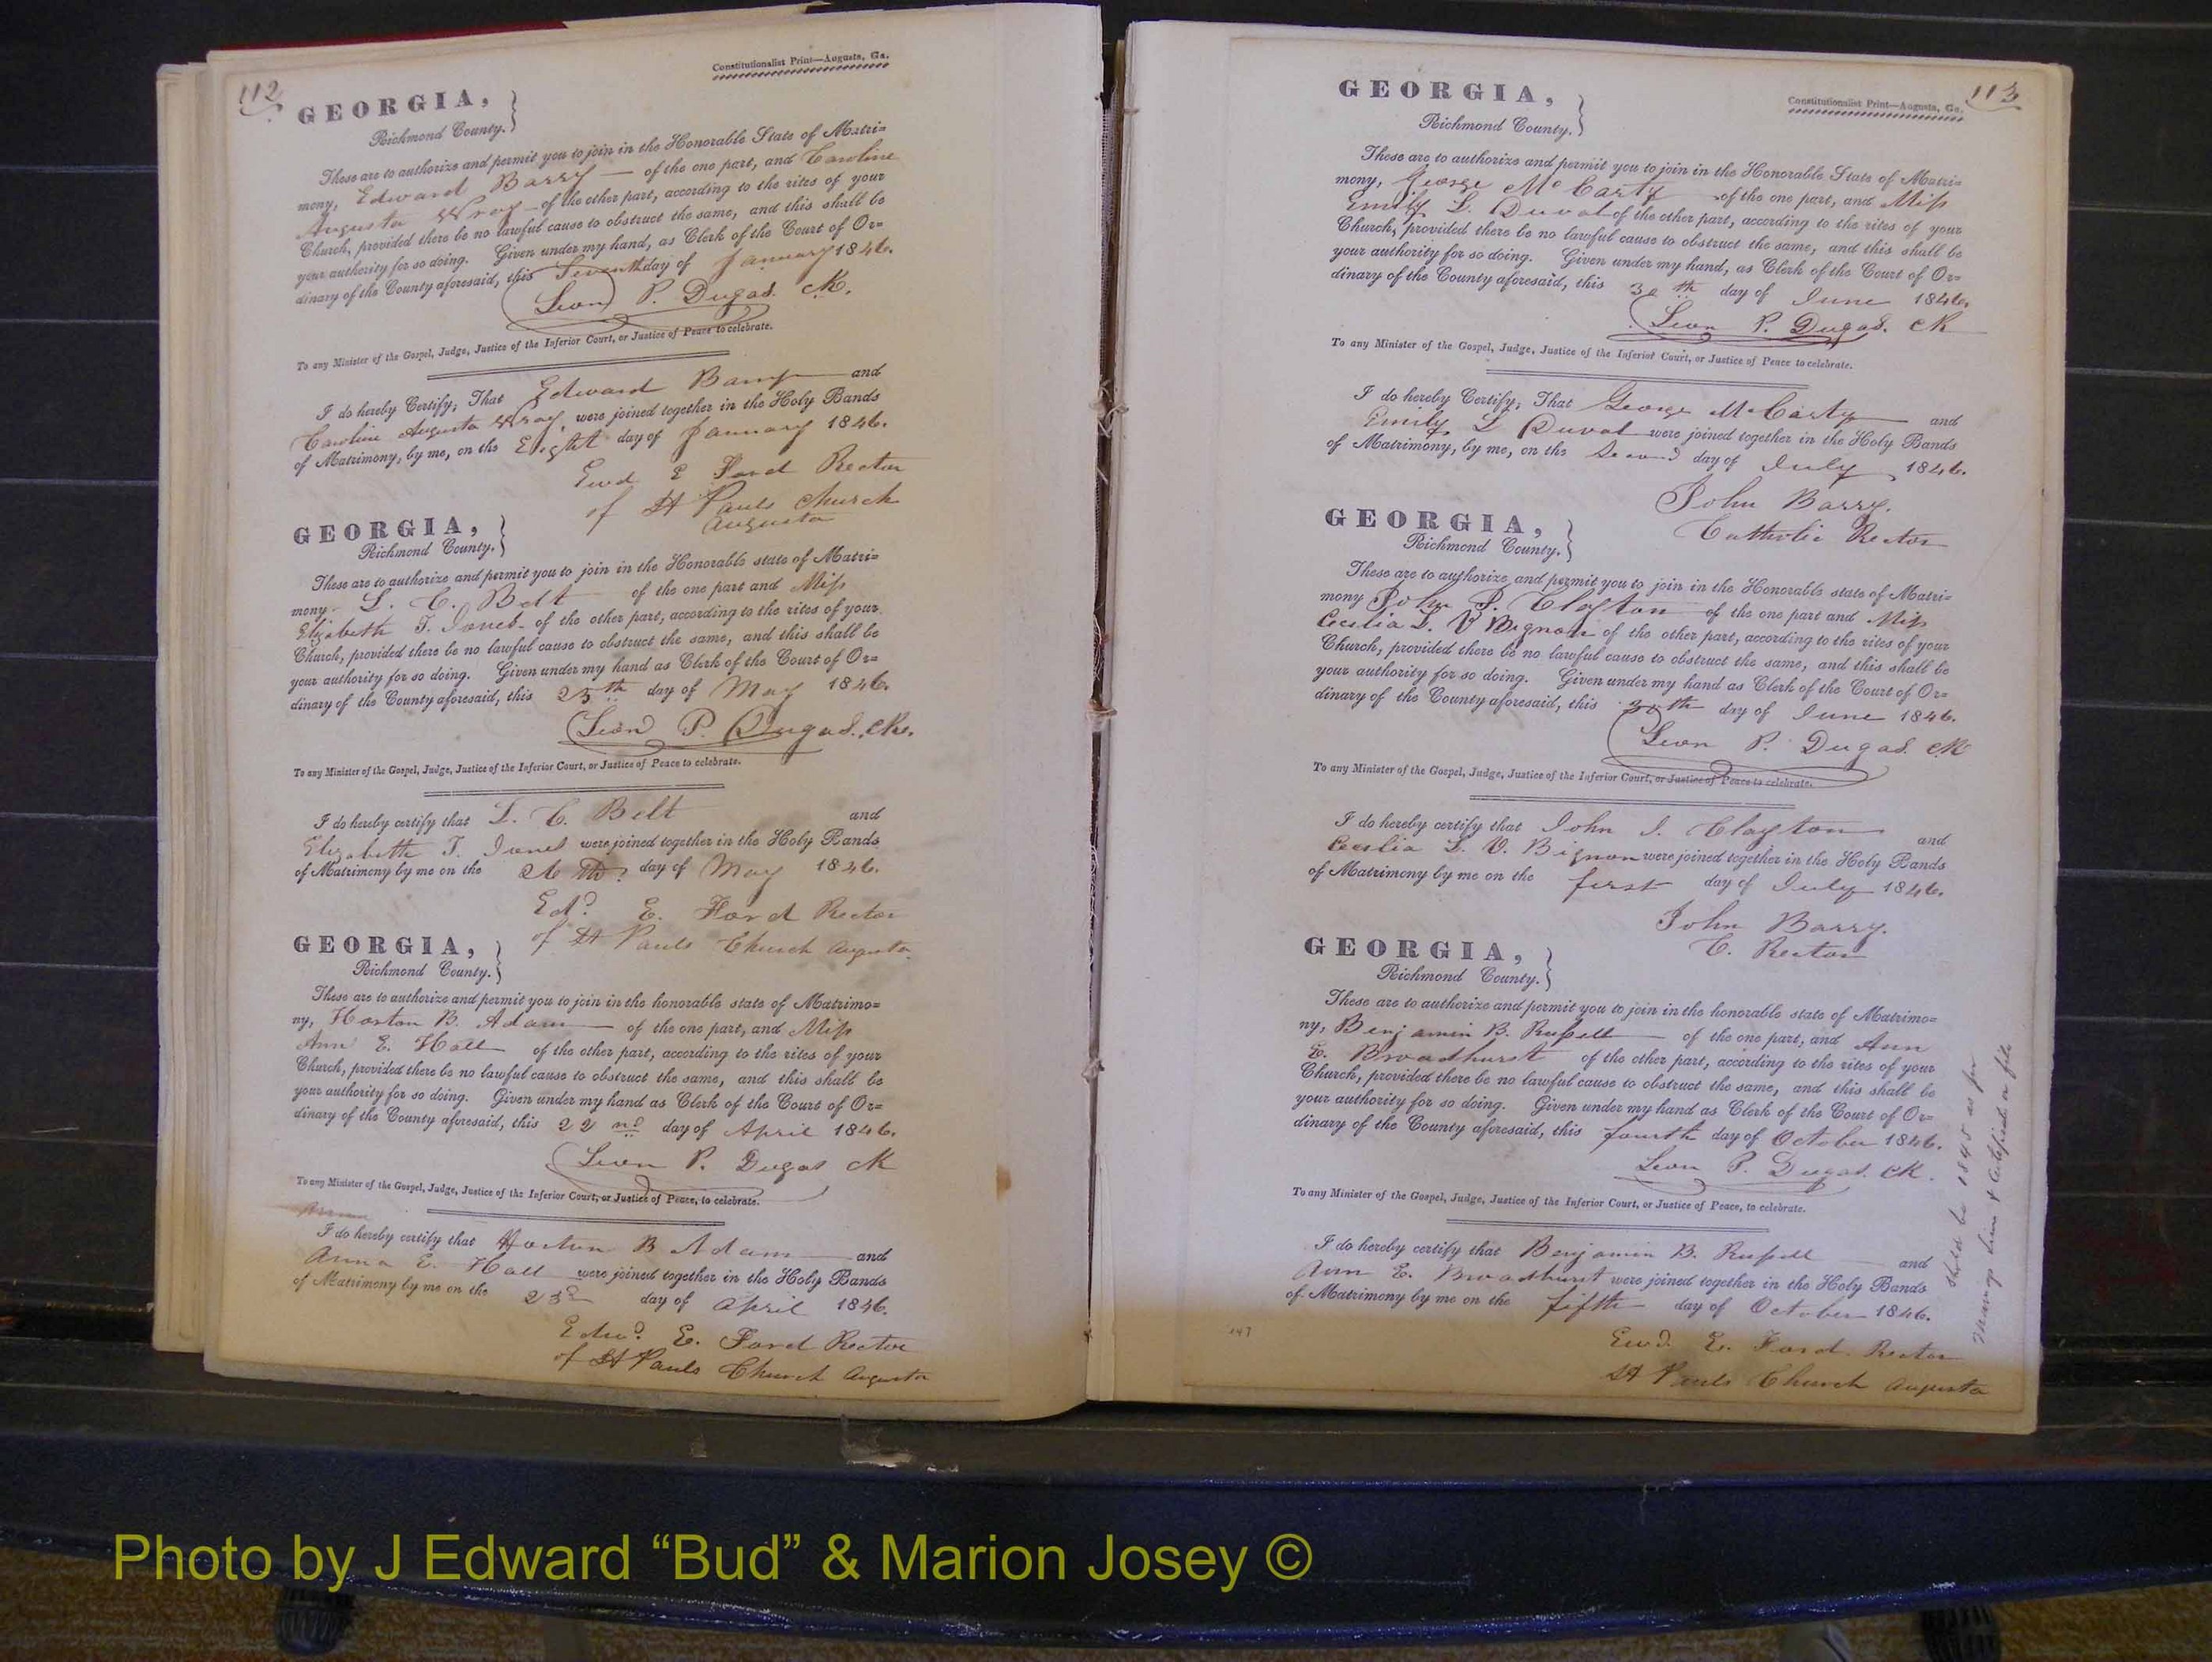 112
Constitutionalist Print—Augusta, Ga.
GEORGIA,
Richmond County.
These are to authorize and permit you to join in the Honorable State of Matri=
mony, Edward Barry — of the one part, and Caroline
Augusta Wray — of the other part, according to the rites of your
Church, provided there be no lawful cause to obstruct the same, and this shall be
your authority for so doing. Given under my hand, as Clerk of the Court of Or=
dinary of the County aforesaid, this Seventh day of January 1846.
Leon P. Dugas. Clk.
To any Minister of the Gospel, Judge, Justice of the Inferior Court, or Justice of Peace to celebrate.
I do hereby Certify; That Edward and
Caroline Augusta Wray, were joined together in the Holy Bands
of Matrimony, by me, on the Eight day of January 1846.
Ewd E Ford Rector
of St Pauls Church
Augusta
GEORGIA,
Richmond County.
These are to authorize and permit you to join in the Honorable state of Matri=
mony L. C. Belt of the one part and Miss
Elizabeth T. Jones of the other part, according to the rites of your
Church, provided there be no lawful cause to obstruct the same, and this shall be
your authority for so doing. Given under my hand as Clerk of the Court of Or=
dinary of the County aforesaid, this 25th day of May 1846.
Leon P. Dugas. Clk.
To any Minister of the Gospel, Judge, Justice of the Inferior Court, or Justice of Peace to celebrate.
I do hereby certify that L. C. Belt and
Elizabeth T. Jones were joined together in the Holy Bands
of Matrimony by me on the 26th day of May 1846.
Edd E. Ford Rector
of St Pauls Church Augusta.
GEORGIA,
Richmond County.
These are to authorize and permit you to join in the honorable state of Matrimo=
ny, Horton B. Adams — of the one part, and Miss
Ann E. Hall of the other part, according to the rites of your
Church, provided there be no lawful cause to obstruct the same, and this shall be
your authority for so doing. Given under my hand as Clerk of the Court of Or=
dinary of the County aforesaid, this 22nd day of April 1846.
Leon P. Dugas Clk
To any Minister of the Gospel, Judge, Justice of the Inferior Court, or Justice of Peace, to celebrate.
I do hereby certify that Horton B Adams and
Anna E. Hall were joined together in the Holy Bands
of Matrimony by me on the 23d day of April 1846.
Edwd. E. Ford Rector
of St Pauls Church Augusta
113
Constitutionalist Print—Augusta, Ga.
GEORGIA,
Richmond County.
These are to authorize and permit you to join in the Honorable State of Matri=
mony, George McCarty of the one part, and Miss
Emily L. Duval of the other part, according to the rites of your
Church, provided there be no lawful cause to obstruct the same, and this shall be
your authority for so doing. Given under my hand, as Clerk of the Court of Or=
dinary of the County aforesaid, this 30th day of June 1846.
Leon P. Dugas. Clk
To any Minister of the Gospel, Judge, Justice of the Inferior Court, or Justice of Peace to celebrate.
I do hereby Certify; That George McCarty and
Emily L Duval were joined together in the Holy Bands
of Matrimony, by me, on the Second day of July, 1846.
John Barry.
Catholic Rector
GEORGIA,
Richmond County.
These are to authorize and permit you to join in the Honorable state of Matri=
mony John P. Clayton of the one part and Miss
Cecilia L. V Bignon of the other part, according to the rites of your
Church, provided there be no lawful cause to obstruct the same, and this shall be
your authority for so doing. Given under my hand as Clerk of the Court of Or=
dinary of the County aforesaid, this 30th day of June 1846.
Leon P. Dugas. Clk
To any Minister of the Gospel, Judge, Justice of the Inferior Court, or Justice of Peace to celebrate.
I do hereby certify that John J. Clayton and
Cecilia L. V. Bignon were joined together in the Holy Bands
of Matrimony by me on the first day of July 1846.
John Barry.
C. Rector
GEORGIA,
Richmond County.
These are to authorize and permit you to join in the honorable state of Matrimo=
ny, Benjamin B. Russell of the one part, and Ann
E. Broadhurst of the other part, according to the rites of your
Church, provided there be no lawful cause to obstruct the same, and this shall be
your authority for so doing. Given under my hand as Clerk of the Court of Or=
dinary of the County aforesaid, this fourth day of October 1846.
Leon P. Dugas. Clk.
To any Minister of the Gospel, Judge, Justice of the Inferior Court, or Justice of Peace, to celebrate.
I do hereby certify that Benjamin B. Russell and
Ann E. Broadhurst were joined together in the Holy Bands
of Matrimony by me on the fifth day of October 1846.
Ewd. E. Ford. Rector
St Pauls Church Augusta
Should be 1845 as per
Marriage License & Certificate on file
Photo by J Edward “Bud” & Marion Josey ©